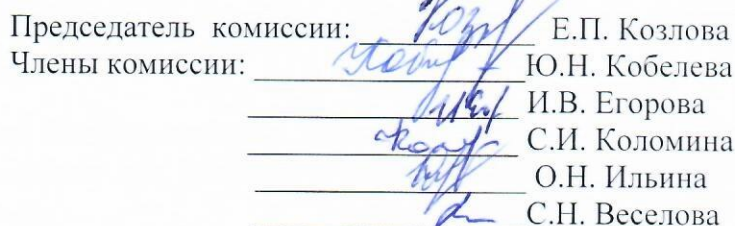 Председатель комиссии: Е.П. Козлова
Члены комиссии: Ю.Н. Кобелева
И.В. Егорова
С.И. Коломина
О.Н. Ильина
С.Н. Веселова